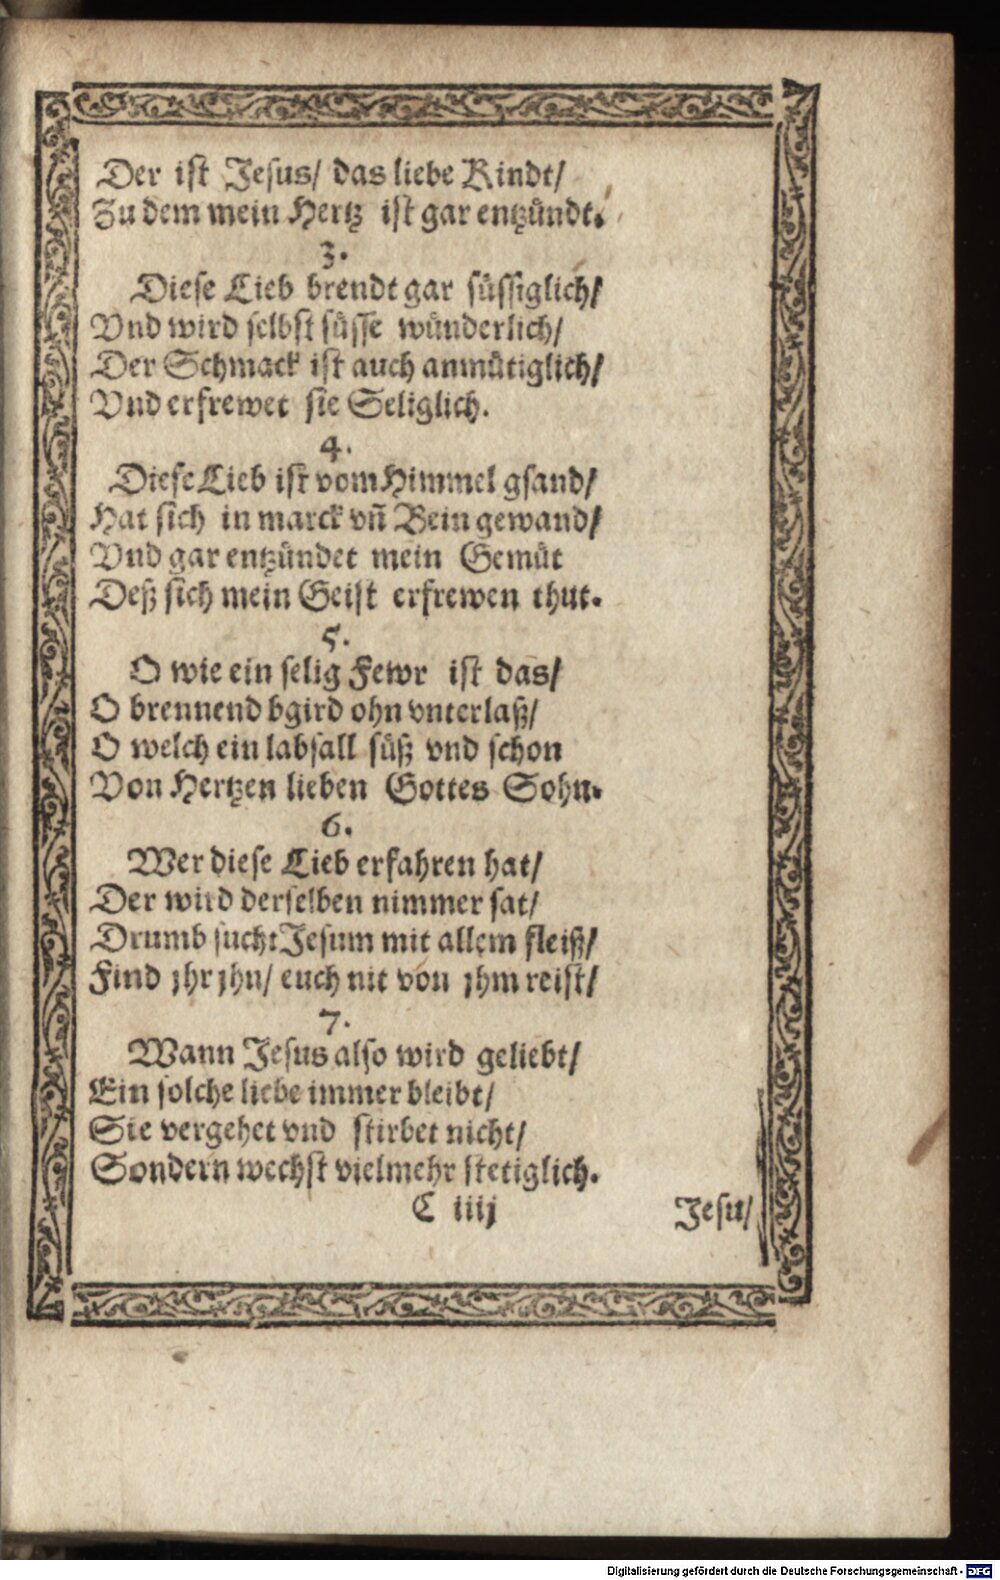 Der ist Jesus/ das liebe Kindt/
Zu dem mein Hertz ist gar entzündt.
3.
Diese Lieb brendt gar süssiglich/
Vnd wird selbst süsse wünderlich/
Der Schmack ist auch anmütiglich/
Vnd erfrewet sie Seliglich.
4.
Diese Lieb ist vom Himmel gsand/
Hat sich in marck vñ Bein gewand/
Vnd gar entzündet mein Gemüt
Deß sich mein Geist erfrewen thut.
5.
O wie ein selig Fewr ist das/
O brennend bgird ohn vnterlaß/
O welch ein labsall süß vnd schon
Von Hertzen lieben Gottes Sohn.
6.
Wer diese Lieb erfahren hat/
Der wird derselben nimmer sat/
Drumb sucht Jesum mit allem fleiß/
Find jhr jhn/ euch nit von jhm reist/
7.
Wann Jesus also wird geliebt/
Ein solche liebe immer bleibt/
Sie vergehet vnd stirbet nicht/
Sondern wechst vielmehr stetiglich.
C iiij Jesu/
Digitalisierung gefördert durch die Deutsche Forschungsgemeinschaft - DFG